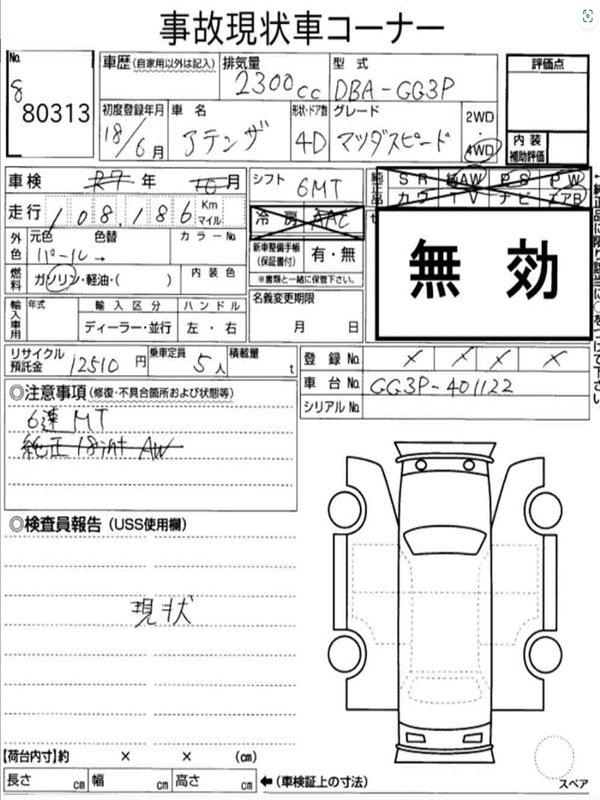 事故現状車コーナー
No. 8 80313
車歴 (自家用以外は記入) 排気量 2300cc 型式 DBA-GG3P 評価点
初度登録年月 18/6月 車名 アテンザ 形状・ドア数 4D グレード マツダスピード 2WD・4WD 内装補助評価
車検 R7年 10月 シフト 6MT 純正品 SR 純AW PS PW
カワ TV ナビ エアB
走行 108,186 Km マイル 冷房 AAC
外色 元色 色替 パール→ カラーNo. 新車整備手帳(保証書付) 有・無 無効
※書類と一緒に保管下さい。
燃料 ガソリン・軽油・( ) 内装色 名義変更期限 月 日
輸入車用 年式 輸入区分 ハンドル
ディーラー・並行 左・右
リサイクル預託金 12510円 乗車定員 5人 積載量 t 登録No. × × × ×
車台No. GG3P-401122
シリアルNo.
◎注意事項 (修復・不具合箇所および状態等)
6速MT
純正18int AW
◎検査員報告 (USS使用欄)
現状
【荷台内寸】約 × × (cm)
長さ cm 幅 cm 高さ cm ←(車検証上の寸法)
スペア